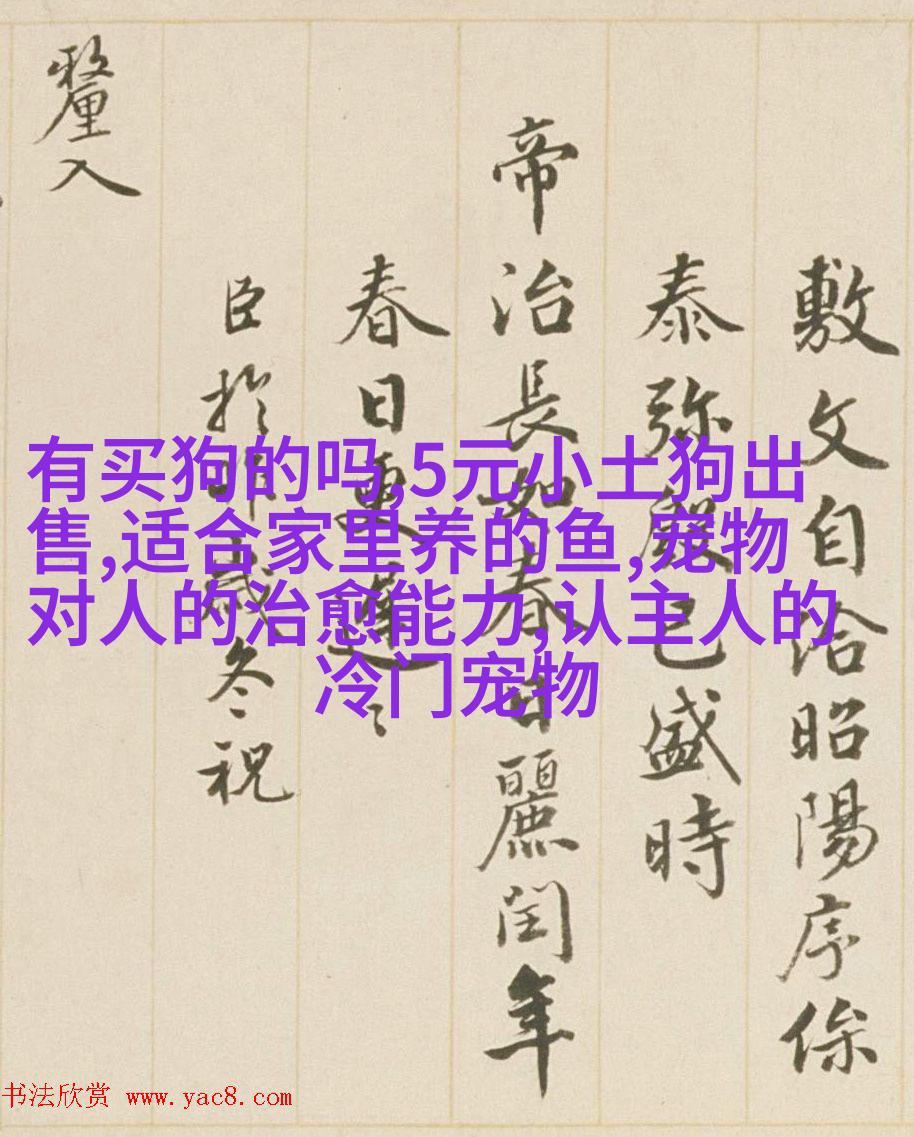 敷文自洽昭陽序
泰弥殷已盛時
帝治長如春日麗閏年
春日更遲々
臣於歲冬祝
釐入
有买狗的吗,5元小土狗出
售,适合家里养的鱼,宠物
对人的治愈能力,认主人的
冷门宠物
书法欣赏 www.yac8.com